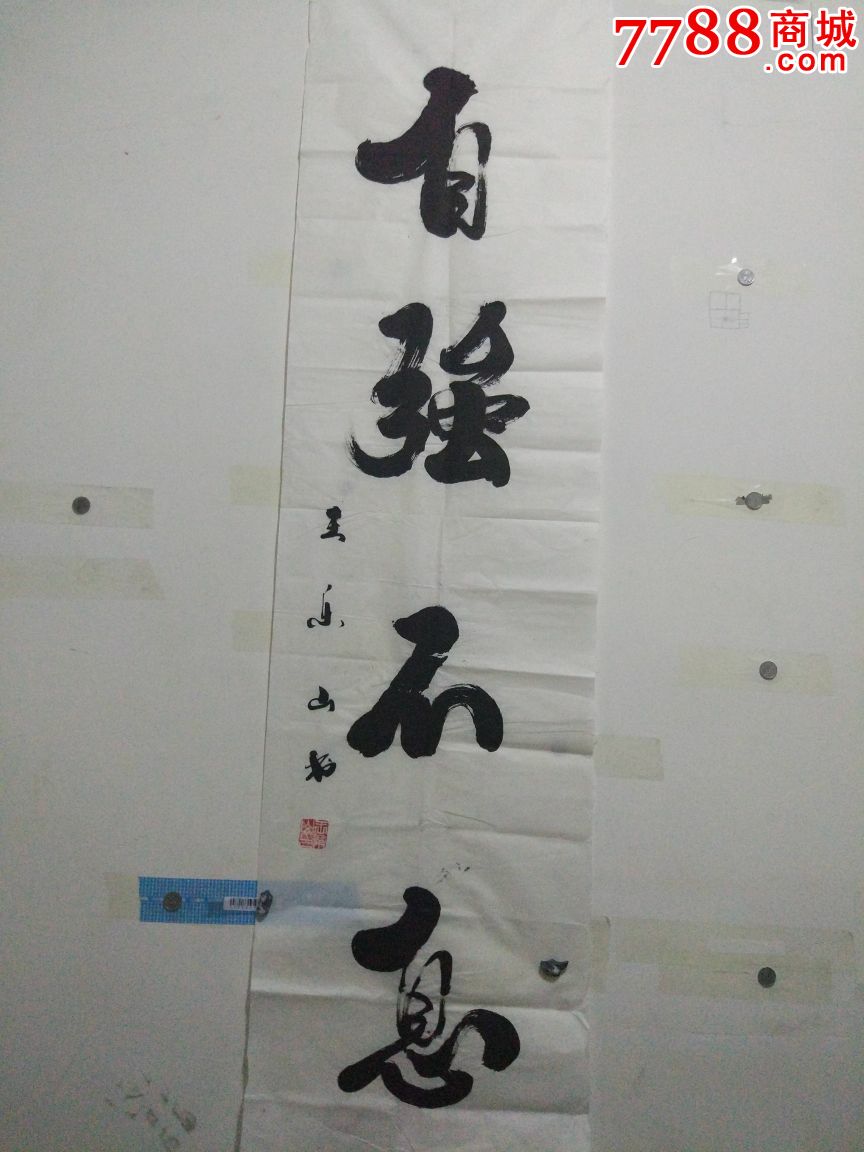 7788商城
.com
自强不息
王乐山书